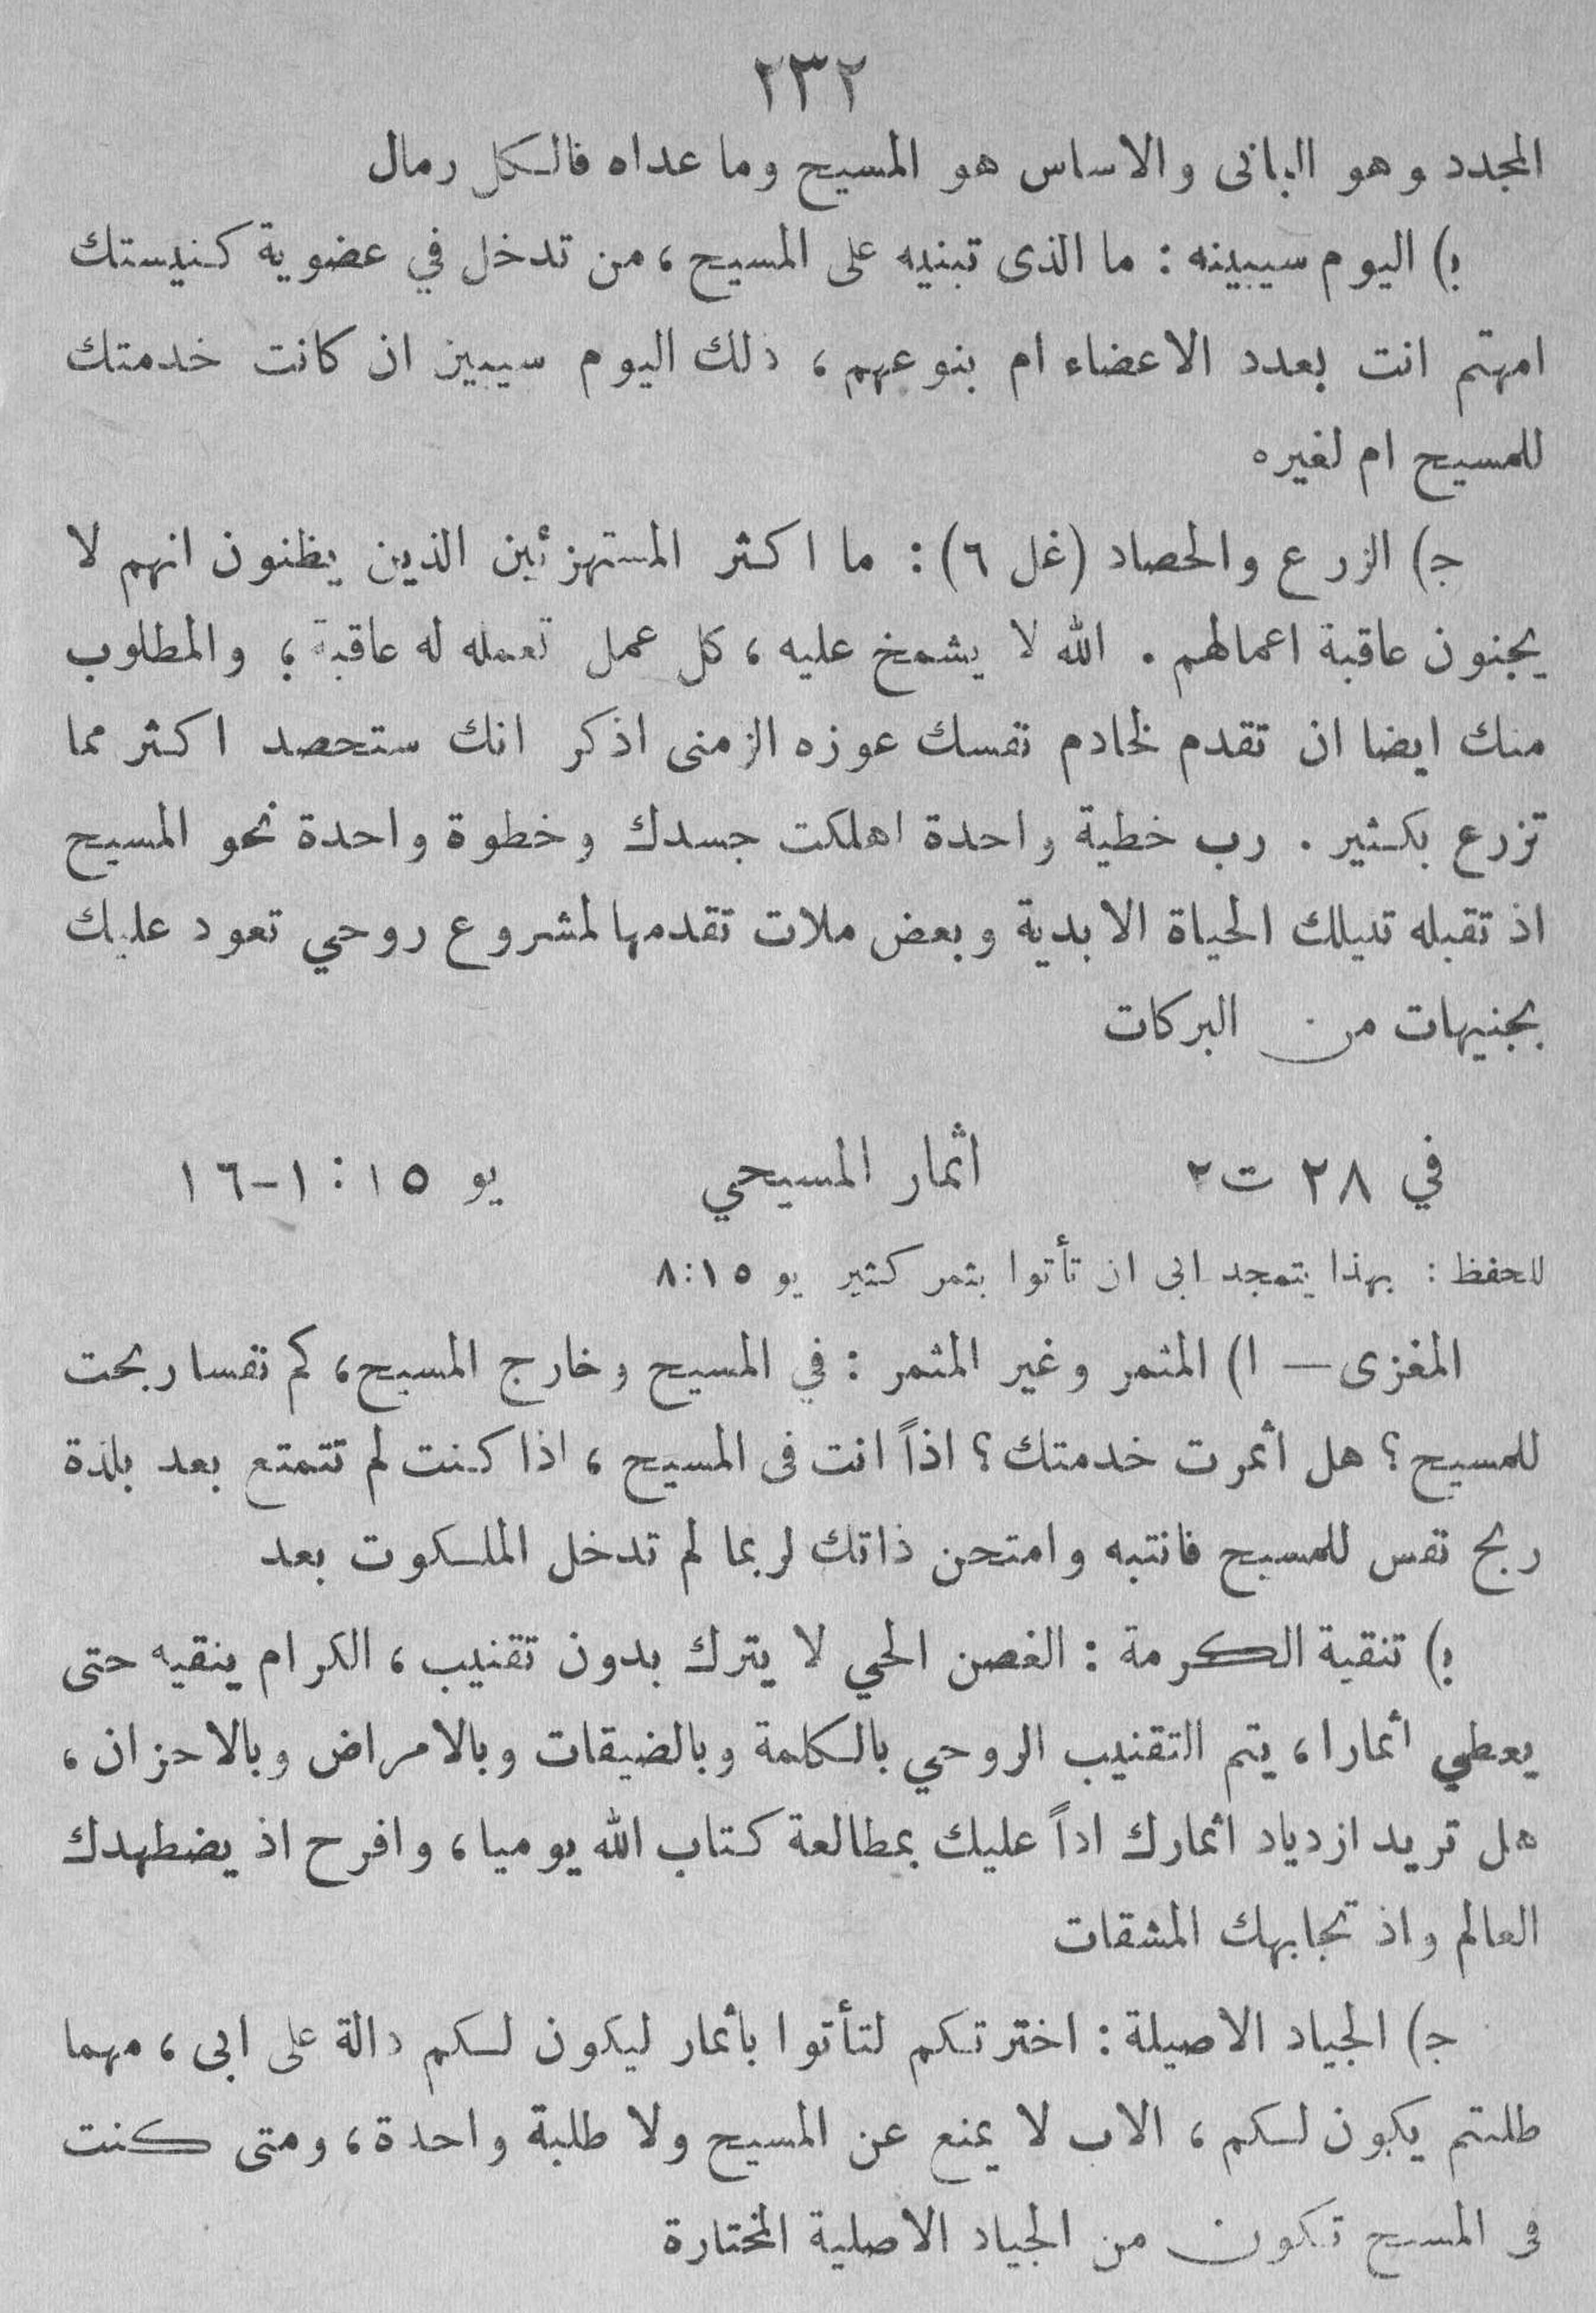 ٢٣٢
المجدد وهو البانى والاساس هو المسيح وما عداه فالكل رمال
ب) اليوم سيبينه : ما الذى تبنيه على المسيح ، من تدخل في عضوية كنيستك
امهتم انت بعدد الاعضاء ام بنوعهم ، ذلك اليوم سيبين ان كانت خدمتك
للمسيح ام لغيره
ج) الزرع والحصاد (غل ٦) : ما اكثر المستهزئين الذين يظنون انهم لا
يجنون عاقبة اعمالهم . الله لا يشمخ عليه ، كل عمل تعمله له عاقبة ، والمطلوب
منك ايضا ان تقدم لخادم نفسك عوزه الزمنى اذكر انك ستحصد اكثر مما
تزرع بكثير . رب خطية واحدة اهلكت جسدك وخطوة واحدة نحو المسيح
اذ تقبله تنيلك الحياة الابدية وبعض ملات تقدمها لمشروع روحي تعود عليك
بجنيهات من البركات
في ٢٨ ت٢ اثمار المسيحي يو ١٥ : ١-١٦
للحفظ : بهذا يتمجد ابى ان تأتوا بثمر كثير يو ١٥:٨
المغزى — ا) المثمر وغير المثمر : في المسيح وخارج المسيح ، كم نفسا ربحت
للمسيح ؟ هل أثمرت خدمتك ؟ اذاً انت فى المسيح ، اذا كنت لم تتمتع بعد بلذة
ربح نفس للمسيح فانتبه وامتحن ذاتك لربما لم تدخل الملكوت بعد
ب) تنقية الكرمة : الغصن الحي لا يترك بدون تقنيب ، الكرام ينقيه حتى
يعطي أثمارا ، يتم التقنيب الروحي بالكلمة وبالضيقات وبالامراض وبالاحزان ،
هل تريد ازدياد اثمارك اذاً عليك بمطالعة كتاب الله يوميا ، وافرح اذ يضطهدك
العالم واذ تجابهك المشقات
ج) الجياد الاصيلة : اخترتكم لتأتوا بأثمار ليكون لكم دالة على ابى ، مهما
طلبتم يكون لكم ، الاب لا يمنع عن المسيح ولا طلبة واحدة ، ومتى كنت
فى المسيح تكون من الجياد الاصلية المختارة